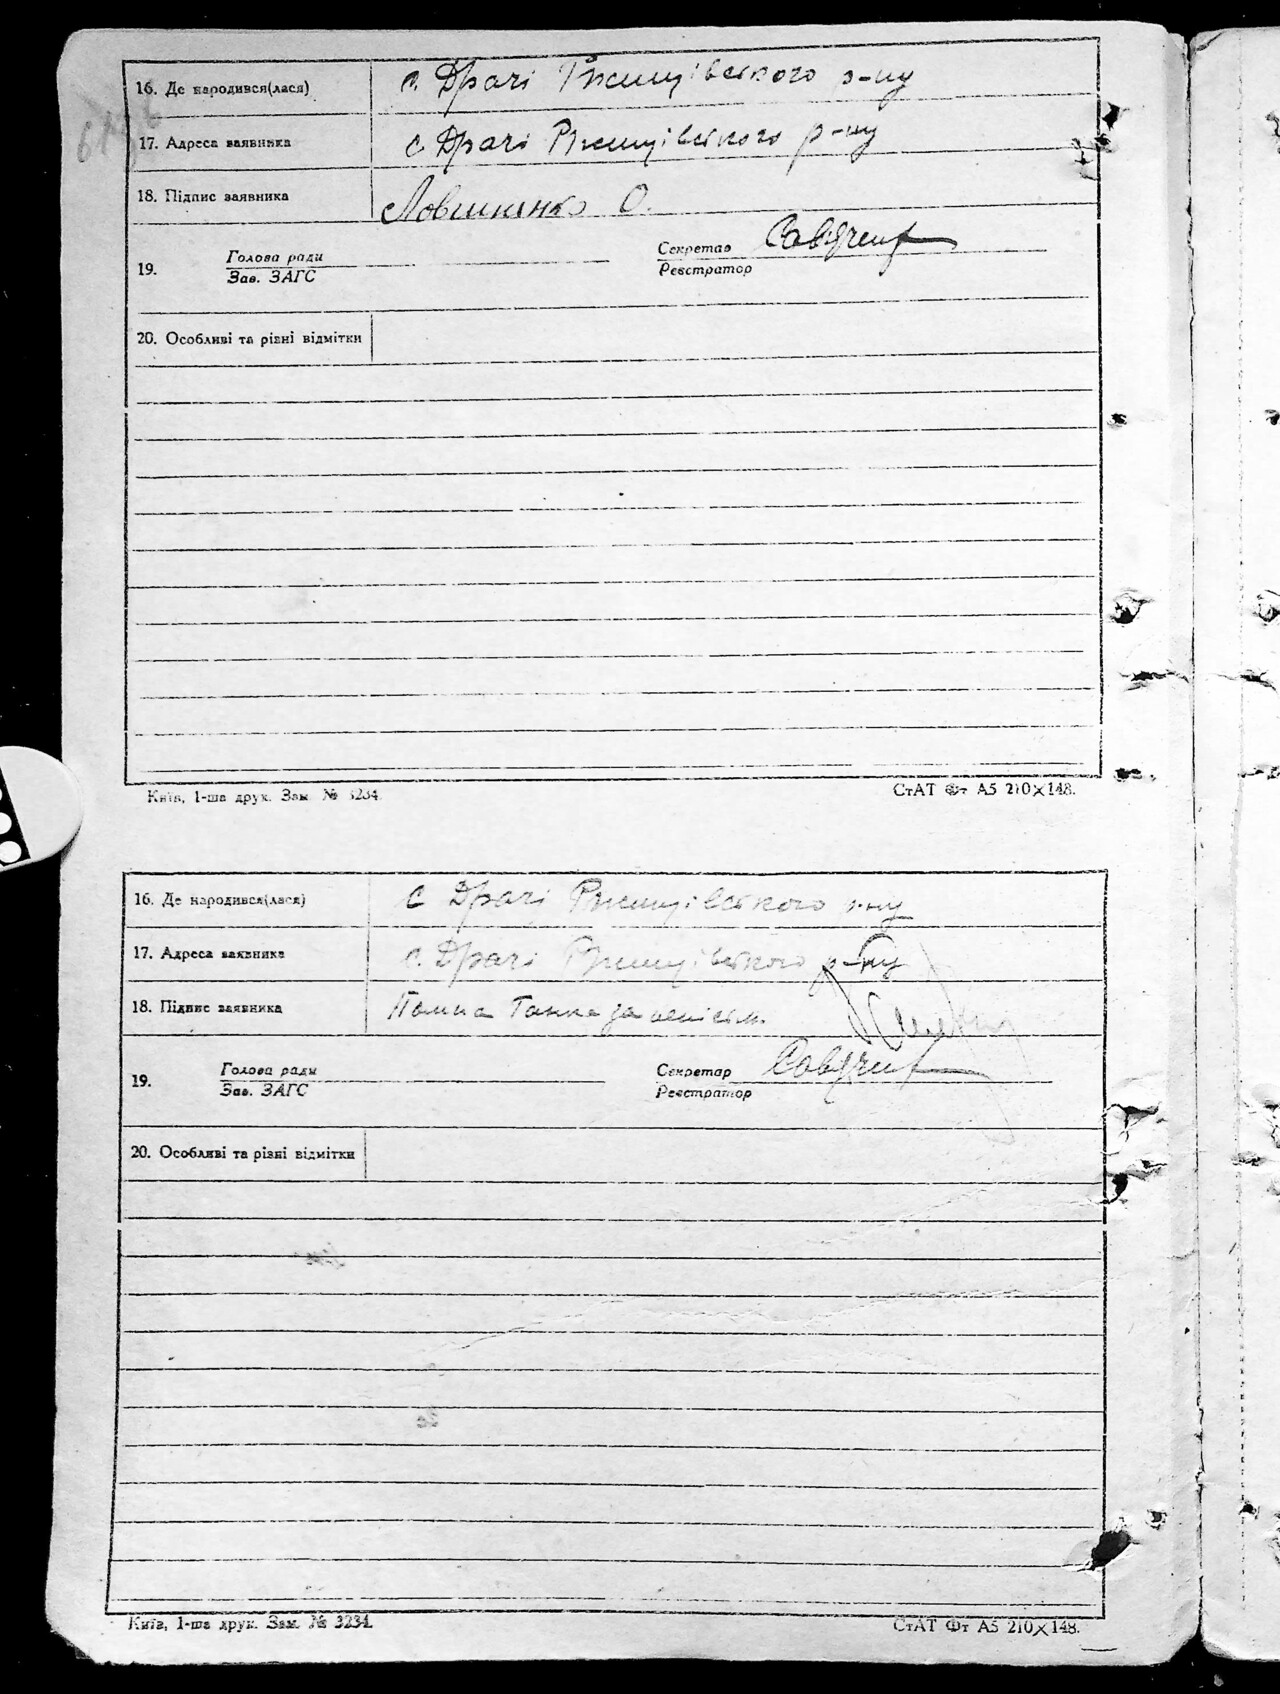 16. Де народився(лася) с. Драчі Ржищівського р-ну
17. Адреса заявника с Драчі Ржищівського р-ну
18. Підпис заявника О.
19. Голова ради Секретар
Зав. ЗАГС Реєстратор
20. Особливі та різні відмітки
Київ, 1-ша друк. Зам. № 3234. СтАТ Фт А5 210×148.
16. Де народився(лася) с Драчі Ржищівського р-ну
17. Адреса заявника с. Драчі Ржищівського р-ну
18. Підпис заявника Ганна
19. Голова ради Секретар
Зав. ЗАГС Реєстратор
20. Особливі та різні відмітки
Київ, 1-ша друк. Зам. № 3234. СтАТ Фт А5 210×148.